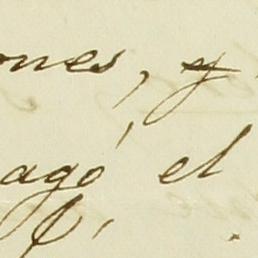 ones, y
ago el